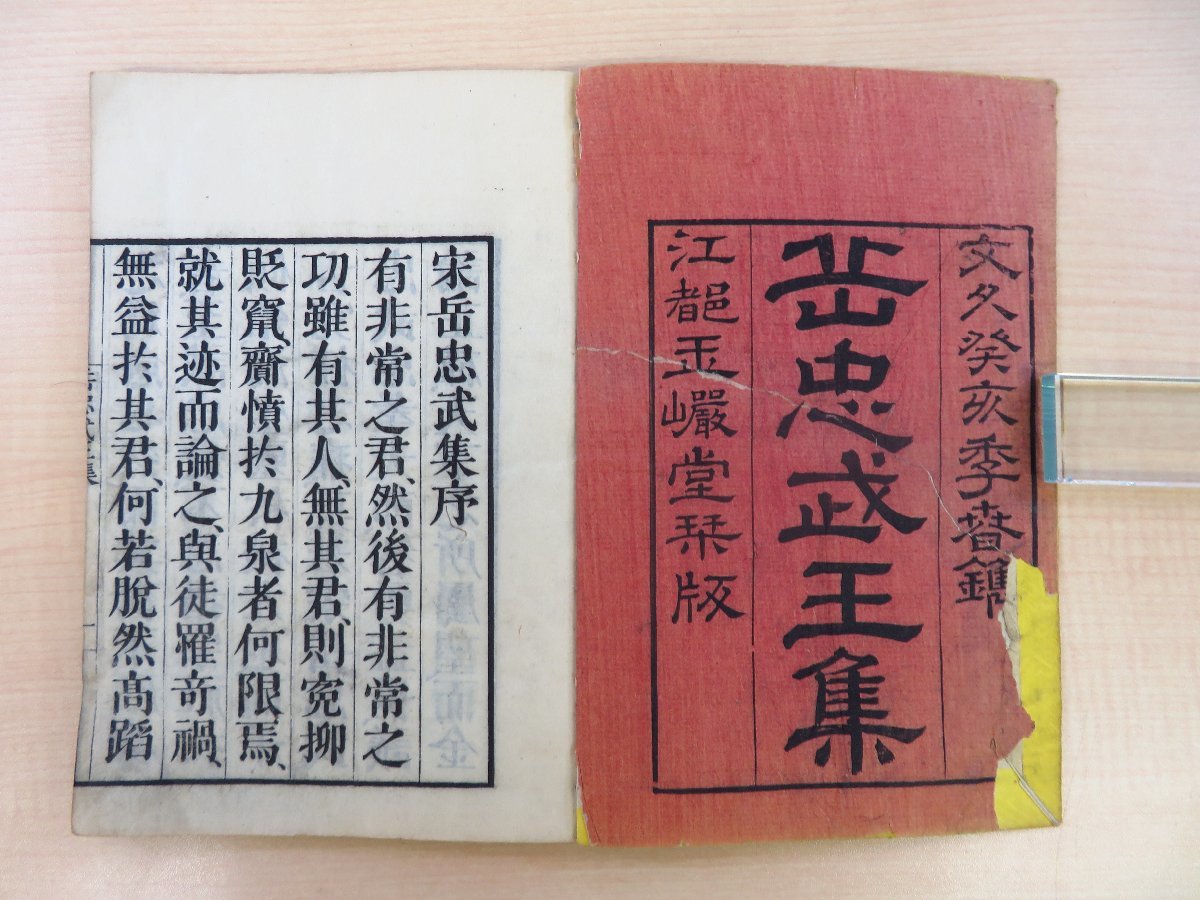 文久癸亥季春鐫
岳忠武王集
江都玉巖堂栞版
宋岳忠武集序
有非常之君、然後有非常之
功、雖有其人、無其君、則寃抑
貶竄、齎憤於九泉者何限焉、
就其迹而論之、與徒罹奇禍、
無益於其君、何若脫然高蹈